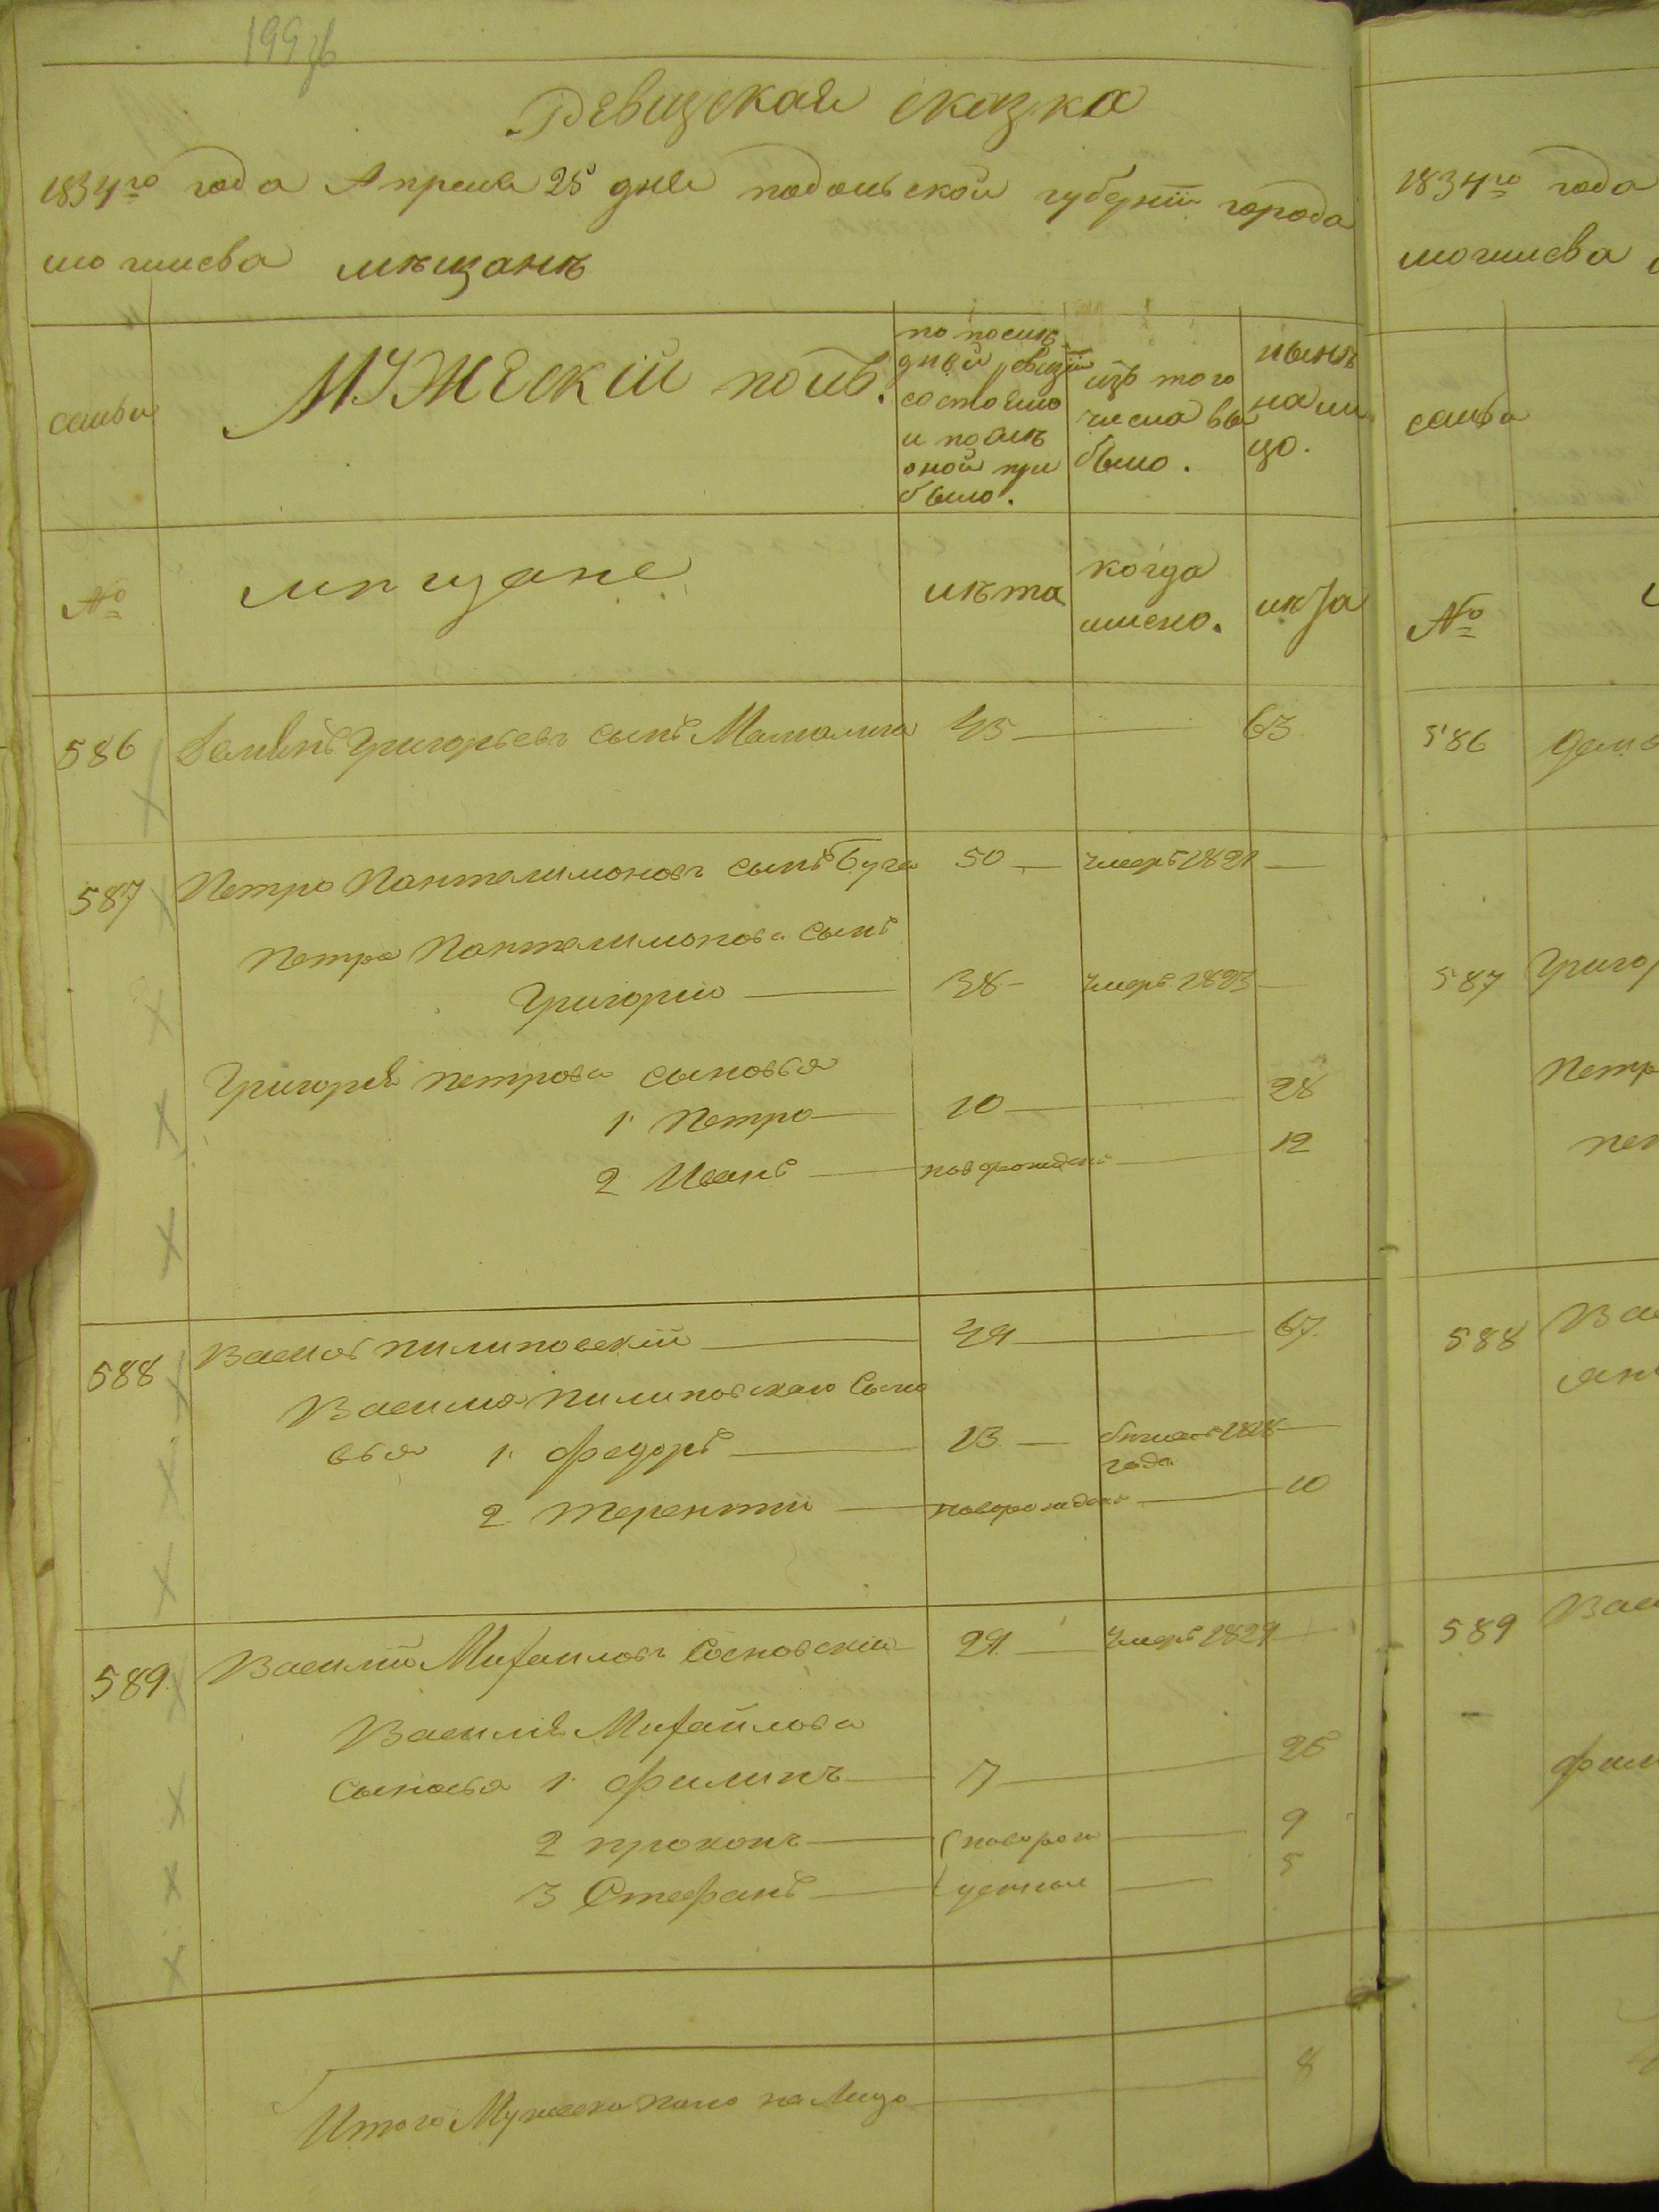 199об
Ревизская сказка
1834го года Апреля 25 дня подольской губернїи города
могилева мѣщанъ
семьи
МУЖЕСКІЙ полъ.
по послѣ
дней ревизїи
состояло
и послѣ
оной при
было.
изъ того
числа вы
было.
нынѣ
на ли
цо.
№
мѣщане
лѣта
когда
имено.
лѣта
586 Григорьевъ сынъ Мамалига 45 63
587 Петро Пантелимоновъ сынъ Буга 50 умеръ 1821
Петра Пантелимонова сынъ
Григорiй 38 умеръ 1823
Григорiя петрова сыновья
1. Петро 10 28
2 Иванъ новорожденъ 12
588 Василь пилиповскiй 49 67
Василия пилиповскаго сыно
вья 1. федоръ 13 1828
года
2. терентiй новорожденъ 10
589. Василiй Михаиловъ Сосновскiй 29 умеръ 1829
Василiя Михайлова
сыновья 1. филипъ 7 25
2 прокопъ новорож 9
3 Стефанъ денные 5
Итого Мужеска пола на Лицо 8
1834го года
могилева
семьи
№
586
587 Григор
Петр
пет
588 Ва
589 Вас
фили